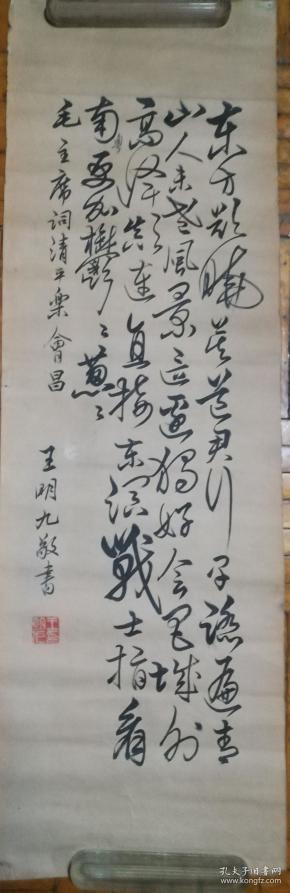 东方欲曉莫道君行早踏遍青
山人未老風景這邊獨好会昌城外
高峰颠連直接东溟戰士指看
南粤更加鬱〻蔥〻
毛主席詞清平樂會昌
王明九敬書
孔夫子旧书网
www.kongfz.com